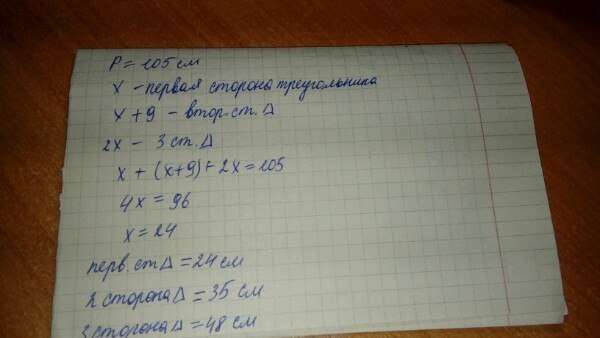 P = 105 см
x - первая сторона треугольника
x + 9 - втор. ст. Δ
2x - 3 ст. Δ
x + (x+9) + 2x = 105
4x = 96
x = 24
перв. ст Δ = 24 см
2 сторона Δ = 35 см
3 сторона Δ = 48 см